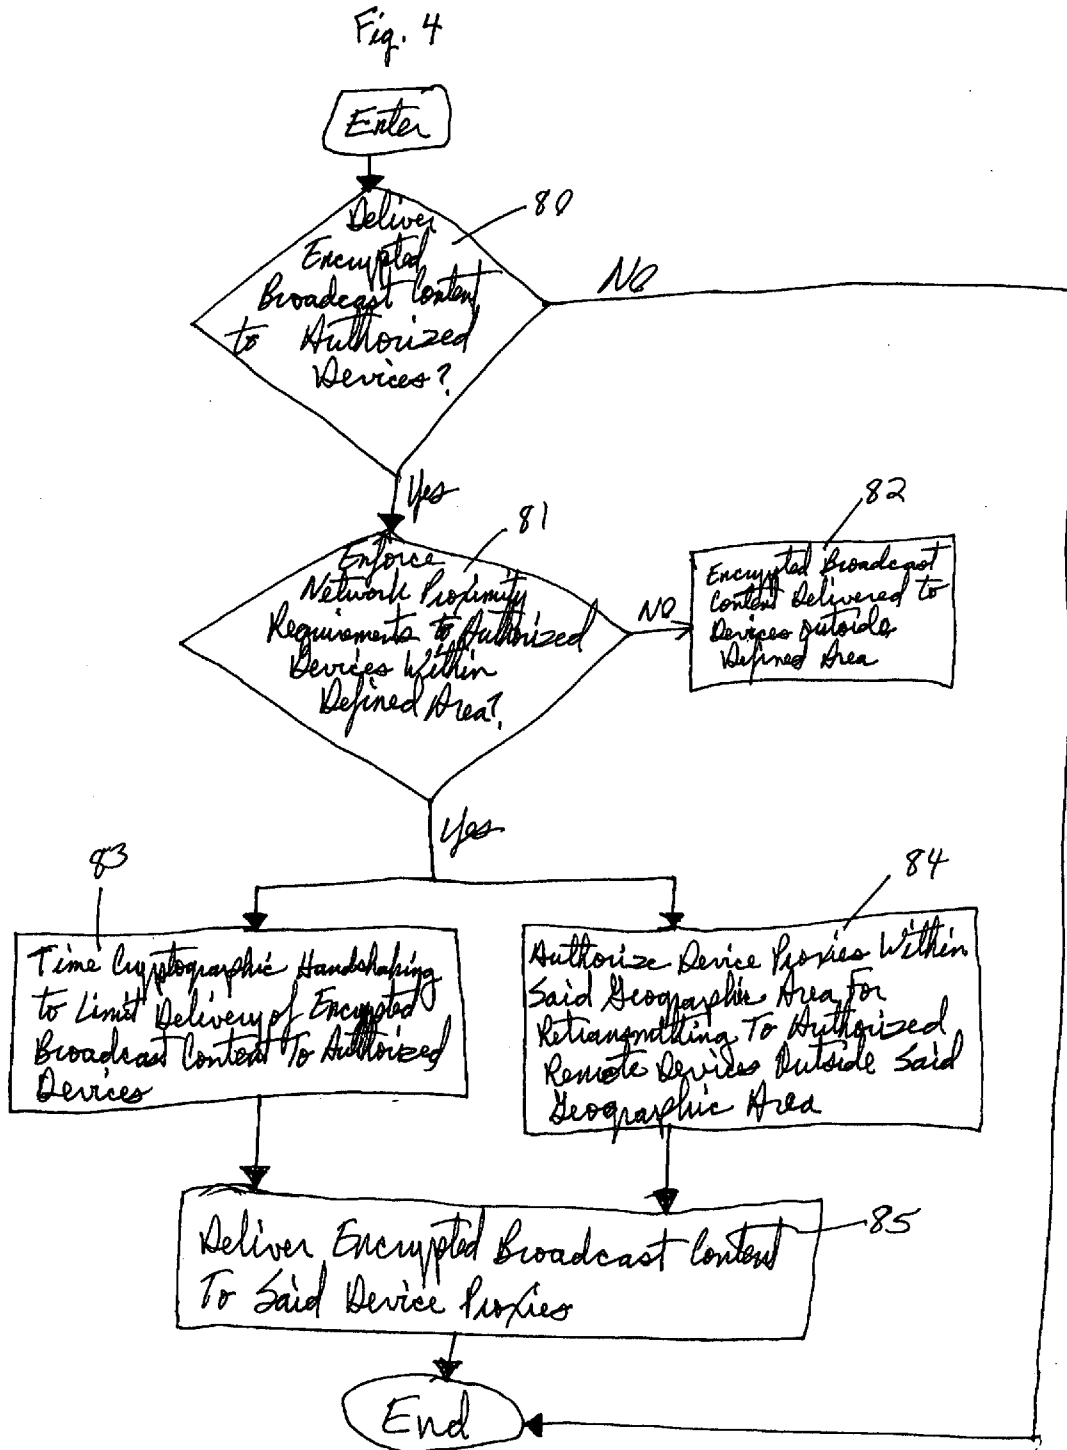 Fig. 4
Enter
80
Deliver
Encrypted
Broadcast Content
to Authorized
Devices?
No
Yes
81
Enforce
Network Proximity
Requirements to Authorized
Devices Within
Defined Area?
No
82
Encrypted Broadcast
Content Delivered to
Devices Outside
Defined Area
Yes
83
Time Cryptographic Handshaking
to Limit Delivery of Encrypted
Broadcast Content To Authorized
Devices
84
Authorize Device Proxies Within
Said Geographic Area For
Retransmitting To Authorized
Remote Devices Outside Said
Geographic Area
85
Deliver Encrypted Broadcast Content
To Said Device Proxies
End